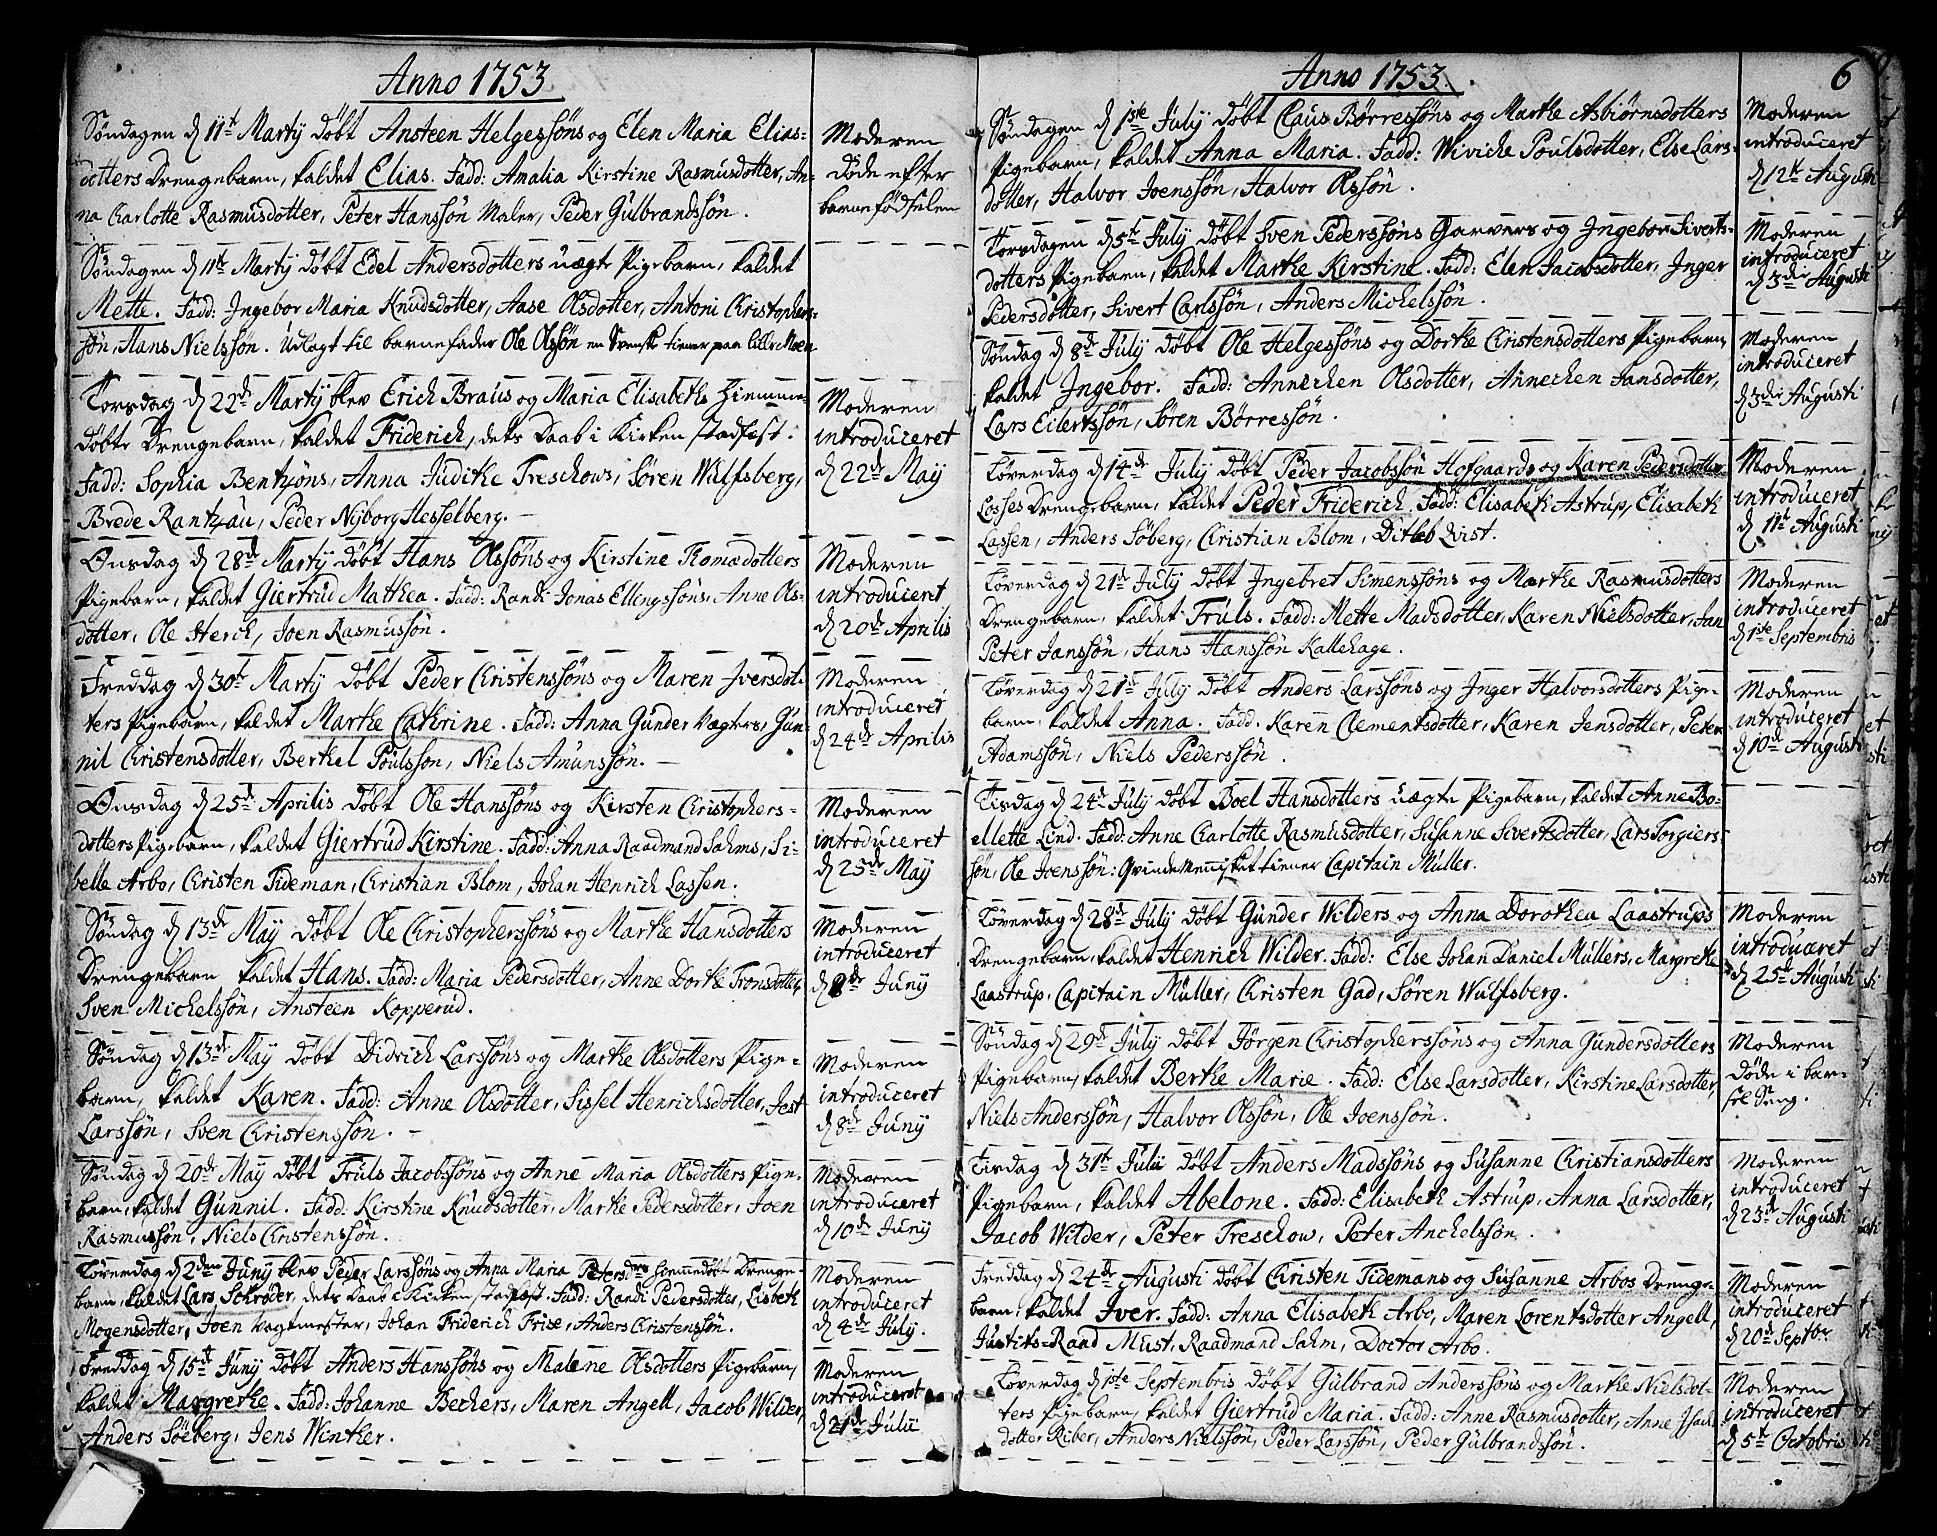 Anno 1753
Söndagen d 11te Martij döbt Ansteen Helgessöns og Elen Maria Elias-
dotters Drengebarn, kaldet Elias. Fadd: Amalia Kirstine Rasmusdotter, An-
na Charlotte Rasmusdotter, Peter Hanssön Maler, Peder Gulbrandssön.
Moderen
döde efter
barnefödselen
Söndagen d 11te Martij döbt Edel Andersdotters uægte Pigebarn, kaldet
Mette. Fadd: Ingebor Maria Knudsdotter, Aase Olsdotter, Antoni Christophers-
sön, Hans Nielssön. Udlagt til barnefader Ole Olssön en Svensk tiener paa lille Moen
Torsdag d 22de Martij blev Erich Braus og Maria Elisabeths hiemme-
döbte Drengebarn, kaldet Friderich, dets Daab i Kirken stadfæst.
Fadd: Sophia Bentzöns, Anna Judithe Treschows, Sören Wulfsberg,
Brede Rantzau, Peder Nyborg Hesselberg.
Moderen
introduceret
d 22de Maij
Onsdag d 28de Martij döbt Hans Olssöns og Kirstine Thomædotters
Pigebarn, kaldet Giertrud Mathea. Fadd: Randi Jonas Ellingssöns, Anne Ols-
dotter, Ole Sterch, Joen Rasmussön.
Moderen
introduceret
d 20de Aprilis
Freddag d 30te Martij döbt Peder Christenssöns og Maren Iversdot-
ters Pigebarn, kaldet Marthe Cathrine. Fadd: Anna Gunder Vægters, Gun-
nil Christensdotter, Berthel Poulsson, Niels Amunssön.
Moderen
introduceret
d 24de Aprilis
Onsdag d 25de Aprilis döbt Ole Hanssöns og Kirsten Christophers-
dotters Pigebarn, kaldet Giertrud Kirstine. Fadd: Anna Raadmand Sahms, Si-
belle Arbo, Christen Tideman, Christian Blom, Johan Henrich Lassen.
Moderen
introduceret
d 25de Maij
Söndag d 13de Maij döbt Ole Christopherssöns og Marthe Hansdotters
Drengebarn kaldet Hans. Fadd: Maria Pedersdotter, Anne Dorthe Tronsdotter,
Sven Michelssön, Ansteen Kopperud.
Moderen
introduceret
d 8de Junij
Söndag d 13de Maij döbt Didrich Larssöns og Marthe Olsdotters Pige-
barn, kaldet Karen. Fadd: Anne Olsdotter, Sissel Henrichsdotter, Jost
Larssön, Sven Christenssön.
Moderen
introduceret
d 8de Junij
Söndag d 20de Maij döbt Truls Jacobssöns og Anne Maria Olsdotters Pige-
barn, kaldet Gunnil. Fadd: Kirstine Knudsdotter, Marthe Pedersdotter, Joen
Rasmussön, Niels Christenssön.
Moderen
introduceret
d 10de Junij
Löverdag d 2den Junij blev Peder Larssöns og Anna Maria Petersdrs hiemmedöbt Drenge-
barn, kaldet Lars Schröder, dets Daab i Kirken stadfæst. Fadd: Randi Pedersdotter, Lisbeth
Mogensdotter, Joen Vagtmester, Johan Friderich Frise, Anders Christenssön.
Moderen
introduceret
d 4de Julij.
Freddag d 15de Junij döbt Anders Hanssöns og Malene Olsdotters Pigebarn,
kaldet Margrethe. Fadd: Johanne Bechers, Maren Angell, Jacob Wilder,
Anders Söeberg, Jens Winther.
Moderen
introduceret
d 21de Julii
Anno 1753.
6
Söndagen d 1ste Julij döbt Claus Börressöns og Marthe Asbiörnsdotters
Pigebarn, kaldet Anna Maria. Fadd: Wiviche Poulsdotter, Else Lars-
dotter, Halvor Joenssön, Halvor Olssön.
Moderen
introduceret
d 12te Augusti
Torsdagen d 5te Julij döbt Sven Pederssöns Garvers og Ingebor Siverts-
dotters Pigebarn, kaldet Marthe Kirstine. Fadd: Elen Jacobsdotter, Inger
Pedersdotter, Sivert Carlssön, Anders Michelssön.
Moderen
introduceret
d 3die Augusti
Söndag d 8de Julij döbt Ole Helgessöns og Dorthe Christensdotters Pigebarn,
kaldet Ingebor. Fadd: Annechen Olsdotter, Annechen Jansdotter,
Lars Eilertssön, Sören Börressön.
Moderen
introduceret
d 3die Augusti
Löverdag d 14de Julij döbt Peder Jacobssön Hofgaards og Karen Pedersdotter
Losses Drengebarn, kaldet Peder Friderich. Fadd: Elisabeth Astrup, Elisabeth
Lassen, Anders Söberg, Christian Blom, Ditleb Qvist.
Moderen
introduceret
d 11te Augusti
Löverdag d 21de Julij döbt Ingebret Simenssöns og Marthe Rasmusdotters
Drengebarn, kaldet Truls. Fadd: Mette Madsdotter, Karen Nielsdotter, Jan
Peter Janssön, Hans Hanssön Kallehage.
Moderen
introduceret
d 1ste Septembris
Löverdag d 21de Julij döbt Anders Larssöns og Inger Halvorsdotters Pige-
barn, kaldet Anna. Fadd. Karen Clementsdotter, Karen Jensdotter, Peter
Adamssön, Niels Pederssön.
Moderen
introduceret
d 10de Augusti
Tisdag d 24de Julij döbt Boel Hansdotters uægte Pigebarn, kaldet Anne Bo-
ellette Lind. Fadd: Anne Charlotte Rasmusdotter, Susanne Sivertsdotter, Lars Torgiers-
sön, Ole Joenssön: Qvindemennisket tiener Capitain Müller.
Löverdag d 28de Julij döbt Gunder Wilders og Anna Dorothea Laastrups
Drengebarn, kaldet Henrich Wilder. Fadd: Else Johan Daniel Müllers, Margrethe
Laastrup, Capitain Müller, Christen Gad, Sören Wulfsberg.
Moderen
introduceret
d 25de Augusti
Söndag d 29de Julij döbt Jörgen Christopherssöns og Anna Gundersdotters
Pigebarn, kaldet Berthe Marie. Fadd: Else Larsdotter, Kirstine Larsdotter,
Niels Anderssön, Halvor Olssön, Ole Joenssön.
Moderen
döde i bar-
sel Seng.
Tirdag d 31te Julii döbt Anders Madssöns og Susanne Christiansdotters
Pigebarn, kaldet Abelone. Fadd: Elisabeth Astrup, Anna Larsdotter,
Jacob Wilder, Peter Treschow, Peter Anchelssön.
Moderen
introduceret
d 23de Augusti
Freddag d 24de Augusti döbt Christen Tidemans og Susanne Arbos Drenge-
barn, kaldet Iver. Fadd: Anna Elisabeth Arbo, Maren Lorentsdotter Angell,
Justits-Raad Must, Raadmand Sahm, Doctor Arbo.
Moderen
introduceret
d 20de Septbr
Löverdag d 1ste Septembris döbt Gulbrand Anderssöns og Marthe Nielsdot-
ters Pigebarn, kaldet Giertrud Maria. Fadd: Anne Rasmusdotter, Anne Isach-
dotter Riber, Anders Nielssön, Peder Larssön, Peder Gulbrandssön.
Moderen
introduceret
d 5te Octobris